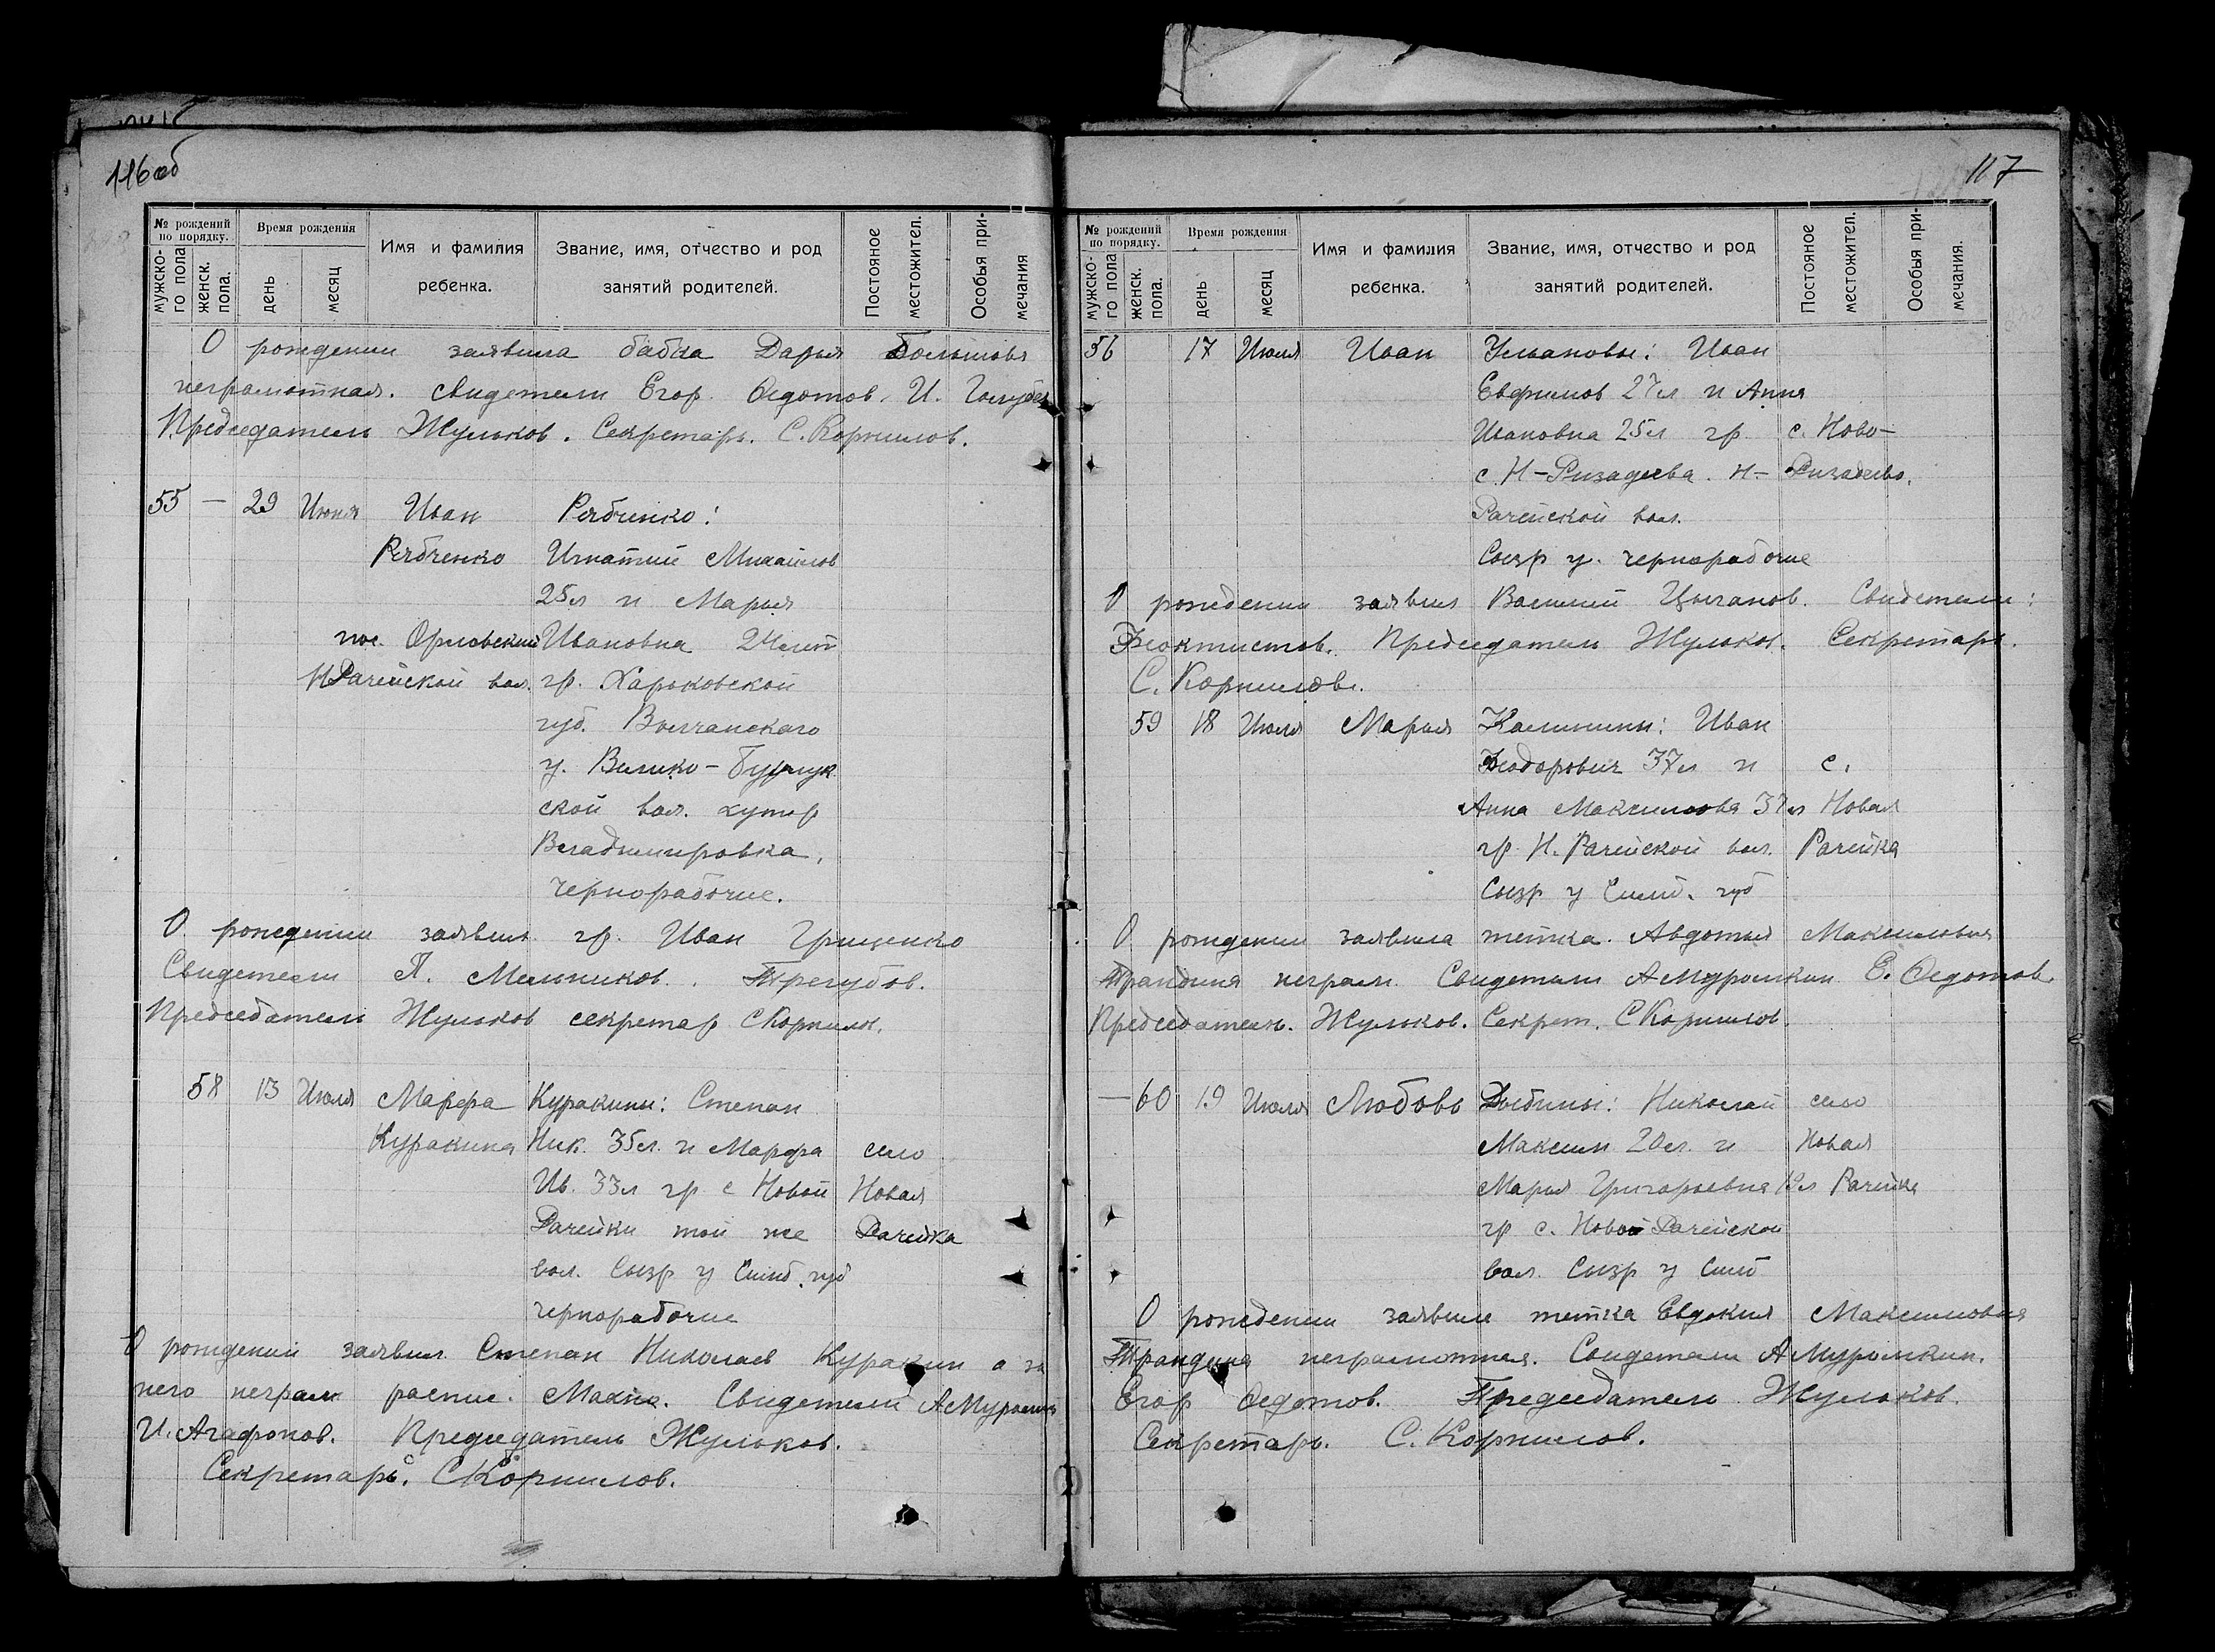 116об
№ рождений по порядку.
мужского пола
женск. пола.
Время рождения
день
месяц
Имя и фамилия ребенка.
Звание, имя, отчество и род занятий родителей.
Постояное местожител.
Особыя примечания
О рождении заявила бабка Дарья Большова
неграмотная. Свидетели Егор Федотов. И.
Председатель Жульков. Секретарь. С. Корнилов.
55 — 29 Июня Иван Рябченко:
Рябченко Игнатий Михайлов
25л и Марья
пос. Орловский Ивановна 24 лет
Н Рачейской вол. гр. Харьковской
губ. Волчанскаго
у. Велико-Бурлук
ской вол. хутор
Владимировка,
чернорабочие.
О рождении заявил гр. Иван Грищенко
Свидетели П. Мельников. Трегубов.
Председатель Жульков секретар СКорнилов.
58 13 Июля Марфа Куракины: Степан
Куракина Ник. 35л. и Марфа село
Ив. 33л гр с Новой Новая
Рачейки той же Рачейка
вол. Сызр у Симб. губ
чернорабочие
О рождений заявил Степан Николаев Куракин а за
него неграм распис. Свидетели
И. Агафонов. Председатель Жульков.
Секретарь. СКорнилов.
117
№ рождений по порядку.
мужского пола
женск. пола.
Время рождения
день
месяц
Имя и фамилия ребенка.
Звание, имя, отчество и род занятий родителей.
Постояное местожител.
Особыя примечания.
56 17 Июля Иван Ульановы: Иван
Евфимов 27л и Анна
Ивановна 25л гр с. Ново-
с. Н-Ризадеева. Н- Ризадеево.
Рачейской вол.
Сызр у. чернорабочие
О рождении заявил Василий Цыганов. Свидетели:
Феоктистов. Председатель Жульков. Секретарь.
С. Корнилов.
59 18 Июля Марья Калинины: Иван
Феодорович 37л и с.
Анна Максимова 37л Новая
гр. Н. Рачейской вол. Рачейка
Сызр у Симб. губ
О рождении заявила тетка. Авдотья Максимовна
Трандина неграм. Свидетели АМуромкин Е. Федотов.
Председатель. Жульков. Секрет. СКорнилов.
— 60 19 Июля Любовь Рыбины: Николай село
Максим 20л. и Новая
Марья Григорьевна 19л Рачейка
гр с. Новой Рачейской
вол. Сызр у Симб
О рождении заявила тетка Евдокия Максимовна
Трандина неграмотная. Свидетели АМуромкин.
Егор Федотов. Председатель Жульков.
Секретарь. С. Корнилов.